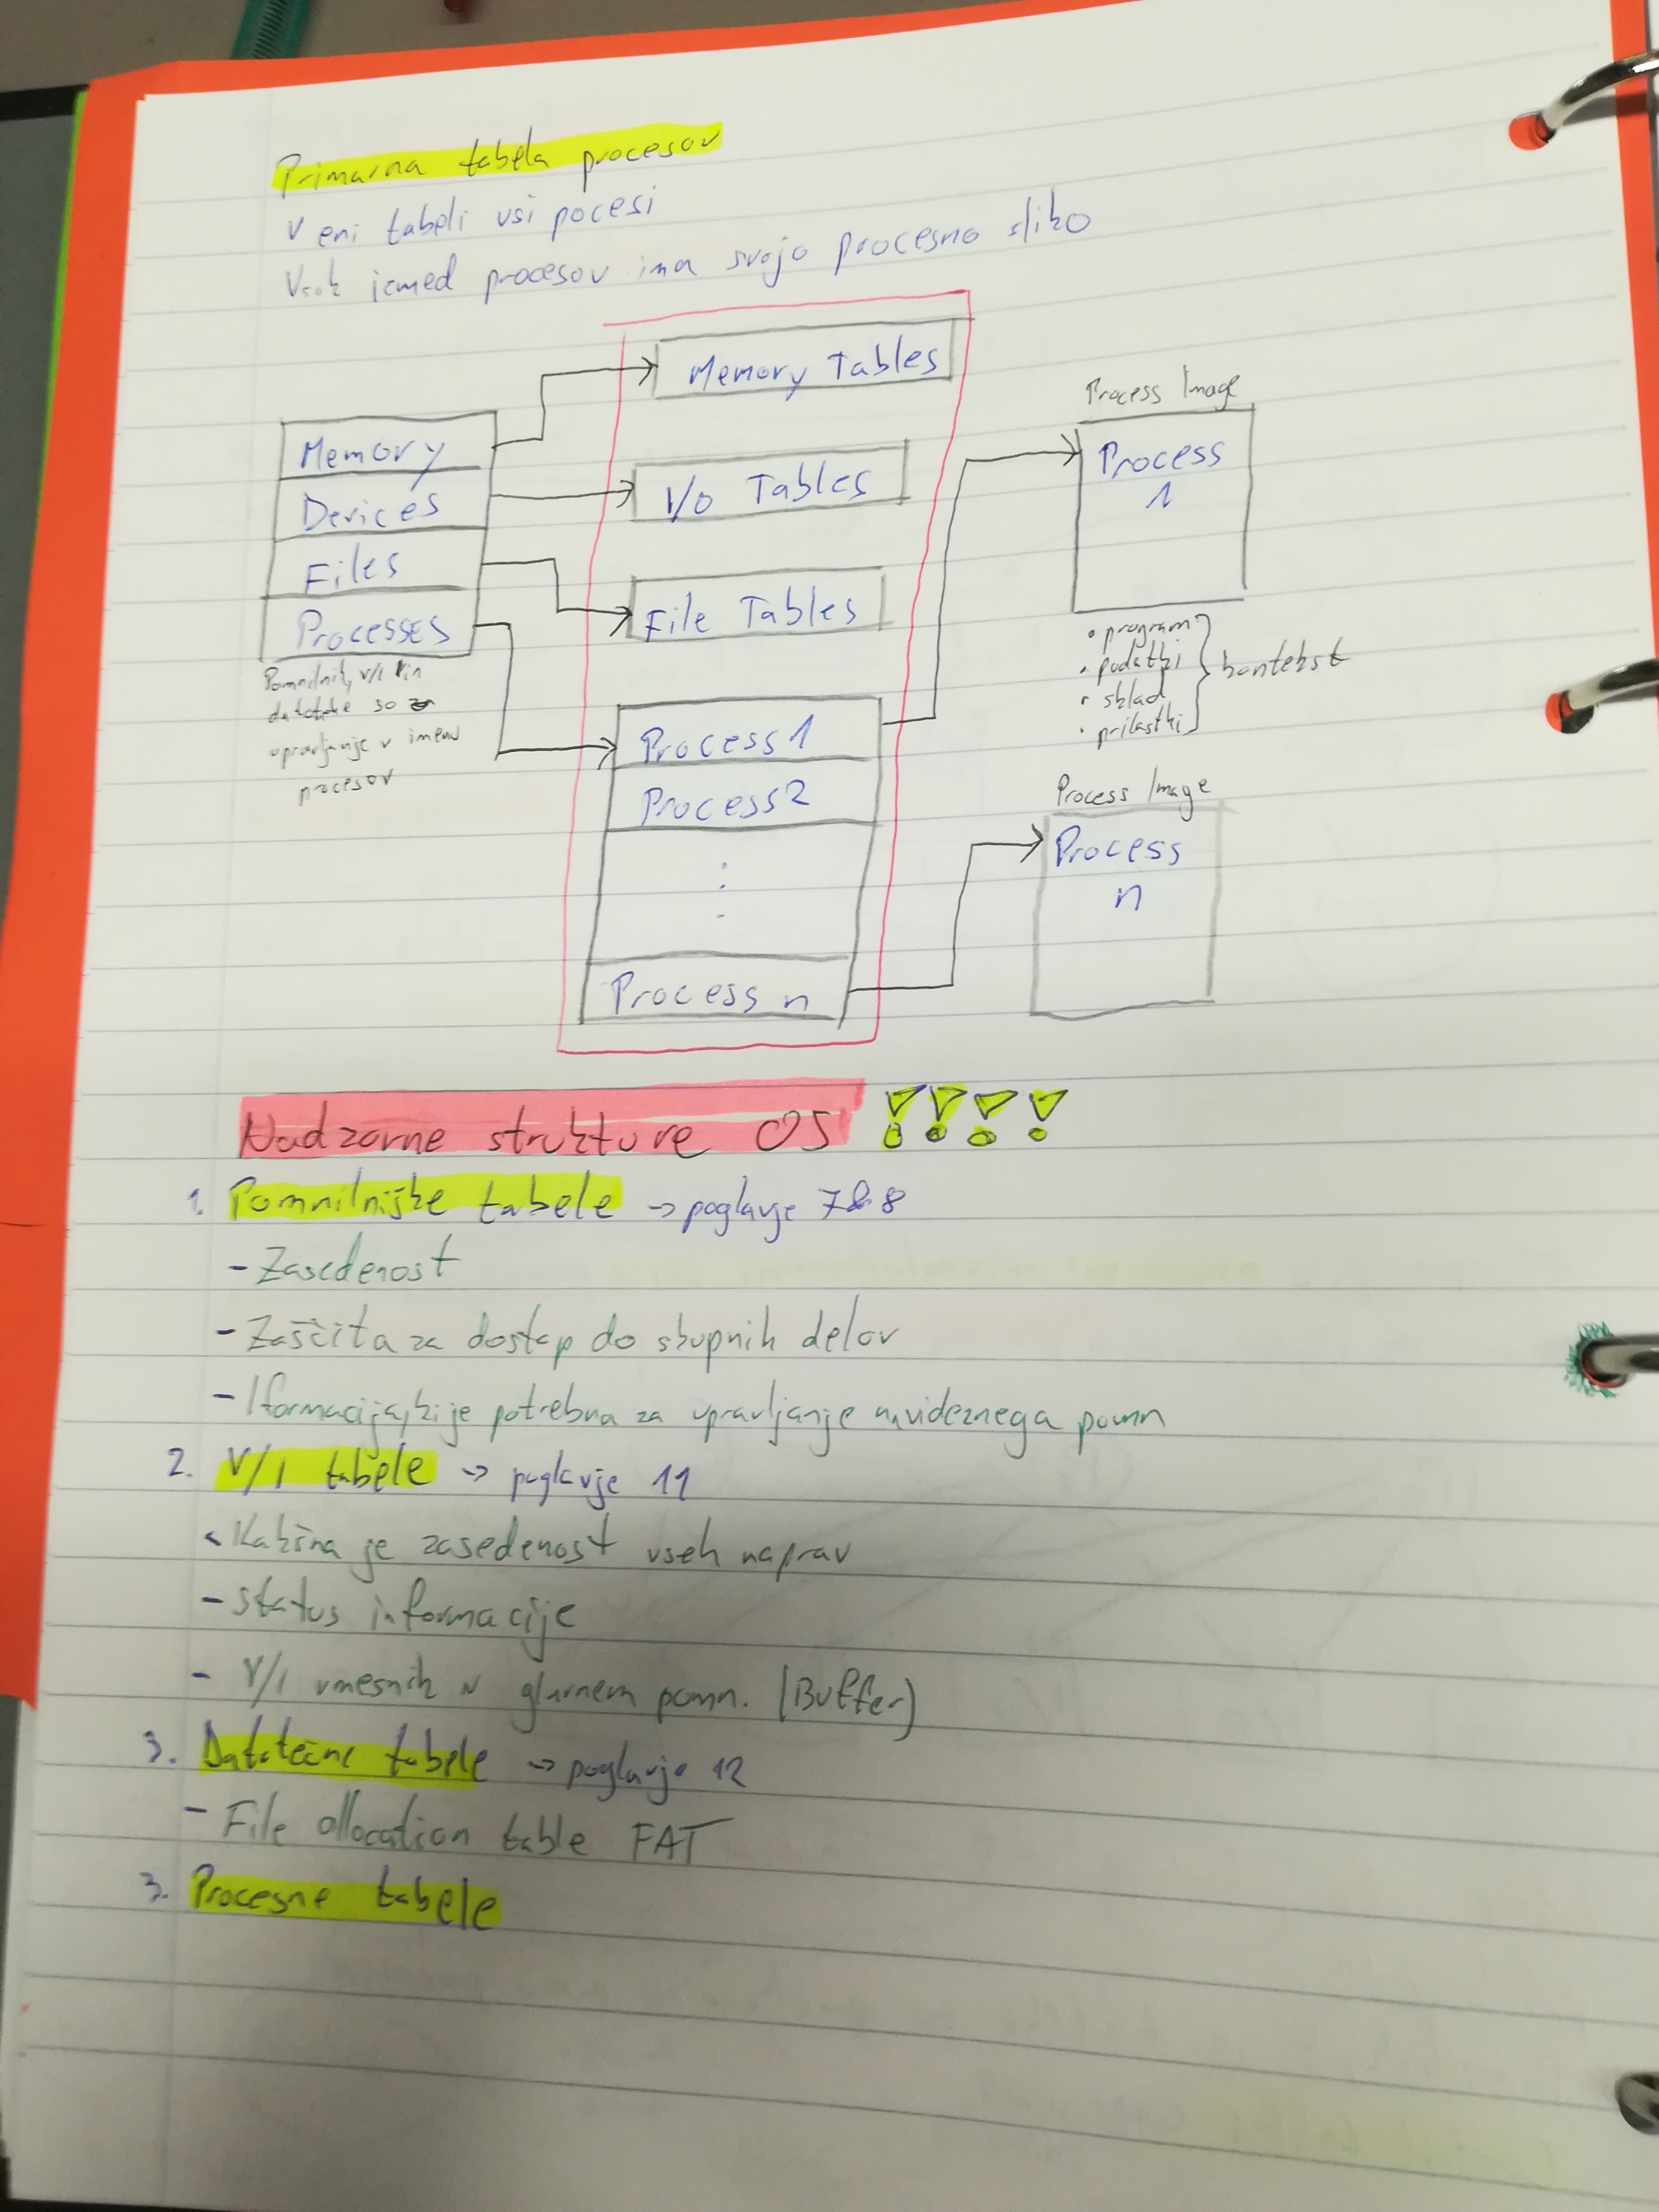 Primarna tabela procesov
V eni tabeli vsi pocesi
Vsak icmed procesov ima svojo procesno sliko
Memory Tables
Process Image
Memory
Process
1
Devices
I/O Tables
Files
File Tables
Processes
• program
• podatki
kontekst
• sklad
• prilastki
Pomnilnik, V/I in
datoteke so za
upravljanje v imenu
procesov
Process 1
Process 2
Process Image
Process
n
⋮
Process n
Nadzorne strukture OS !!!!
1. Pomnilniške tabele → poglavje 7&8
- Zasedenost
- Zaščita za dostop do skupnih delov
- Iformacija, ki je potrebna za upravljanje navideznega pomn
2. V/I tabele → poglavje 11
- Kakšna je zasedenost vseh naprav
- Status informacije
- V/I vmesnik v glavnem pomn. (Buffer)
3. Datotečne tabele → poglavje 12
- File allocation table FAT
3. Procesne tabele